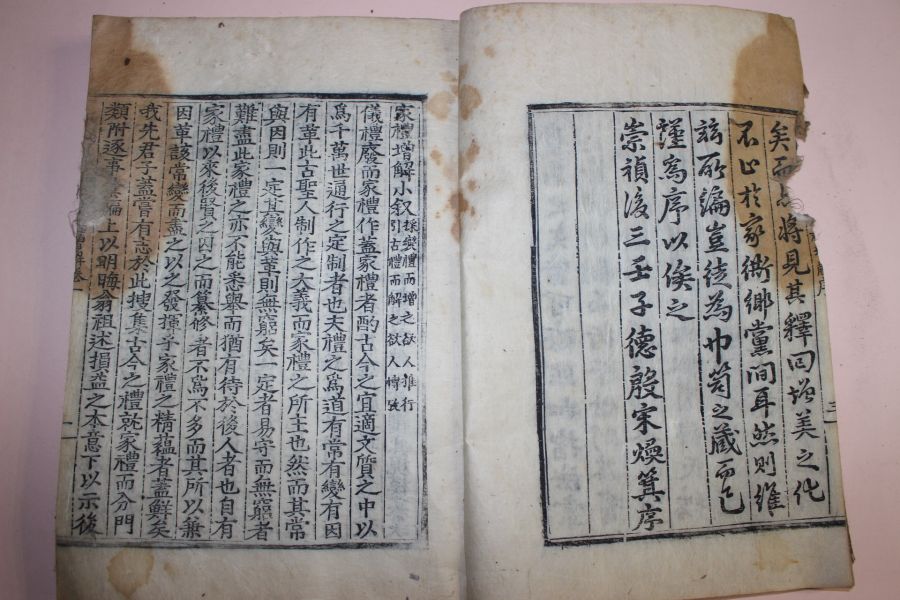 矣而將見其釋回增美之化
不止於家衖鄉黨間耳然則維
玆所編豈徒為巾笥之蔵而已
謹寫序以俟之
崇禎後三壬子德殷宋煥箕序
三
家禮增解小叙 採變禮而增之欲人推行
引古禮而解之欲人博攷
儀禮廢而家禮作蓋家禮者酌古今之宜適文質之中以
爲千萬世通行之定制者也夫禮之爲道有常有變有因
有革此古聖人制作之大義而家禮之所主也然而其常
與因則一定其變與革則無窮矣一定者易守而無窮者
難盡此家禮之亦不能悉舉而猶有待於後人者也自有
家禮以來後賢之因之而纂修者不爲不多而其所以兼
因革該常變而盡之以之發揮乎家禮之精蘊者蓋鮮矣
我先君子蓋嘗有志於此搜集古今之禮就家禮而分門
類附逐事編上以明晦翁祖述損益之本意下以示後
一